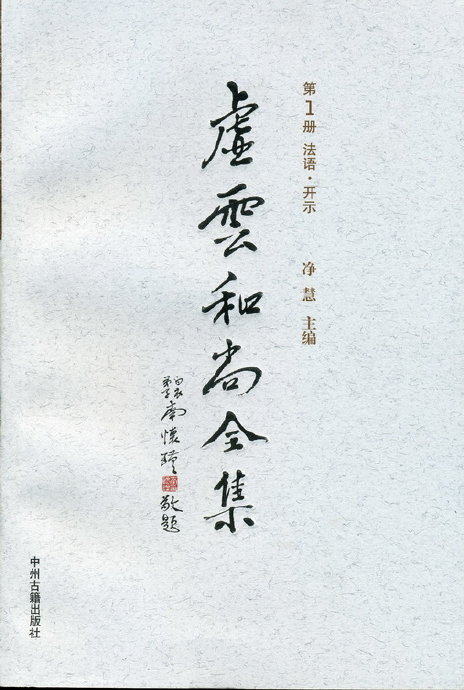 第1册 法语·开示
净慧 主编
虛雲和尚全集
南懷瑾敬题
中州古籍出版社